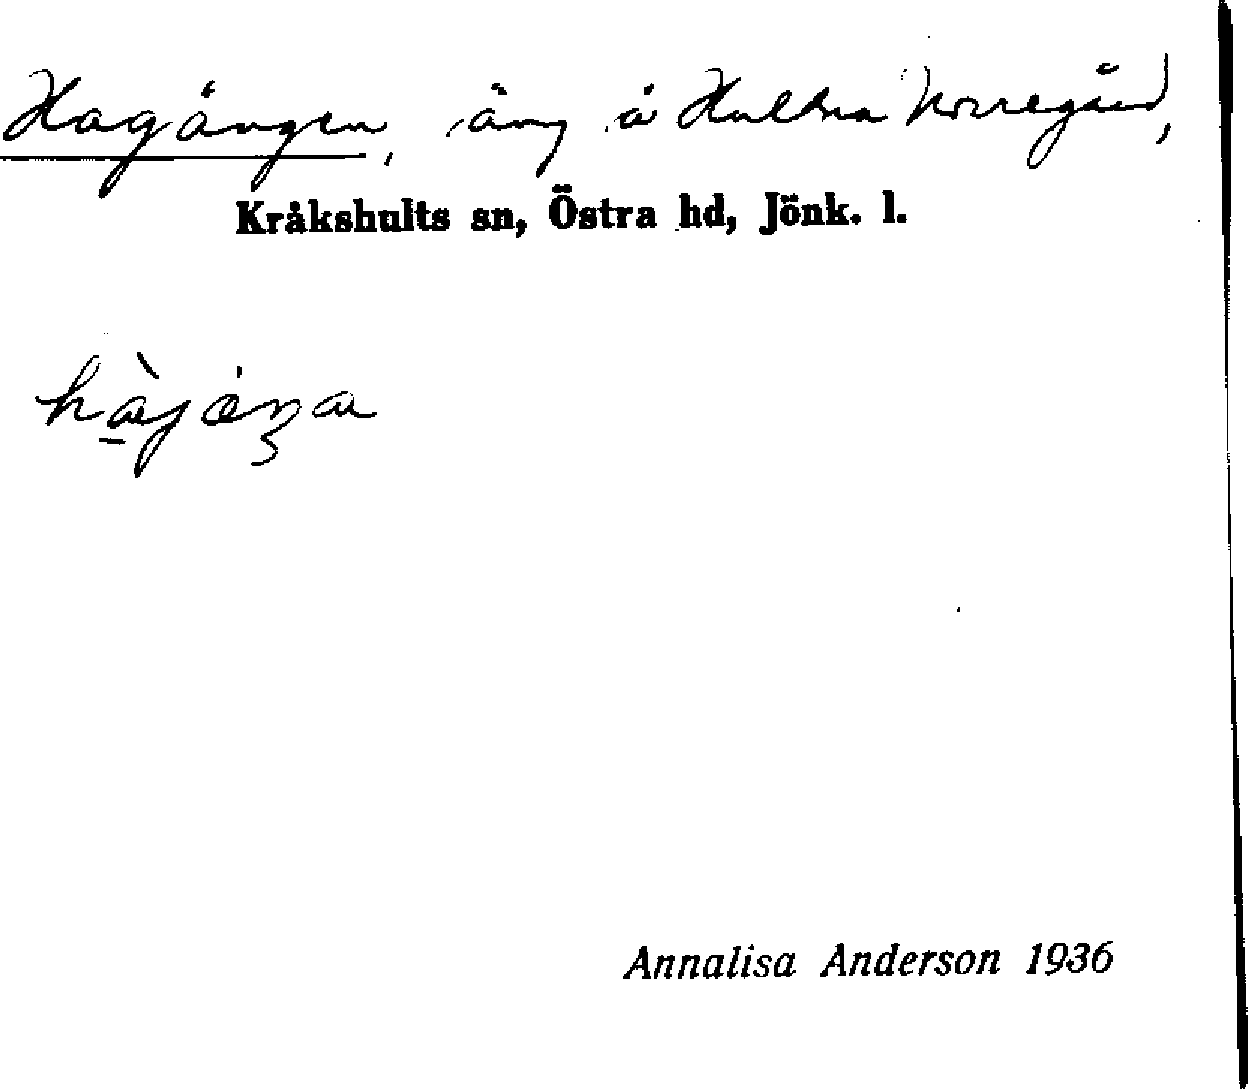 Hagängen, äng å Hultna Norregård,
Kråkshults sn, Östra hd, Jönk. l.
Annalisa Anderson 1936